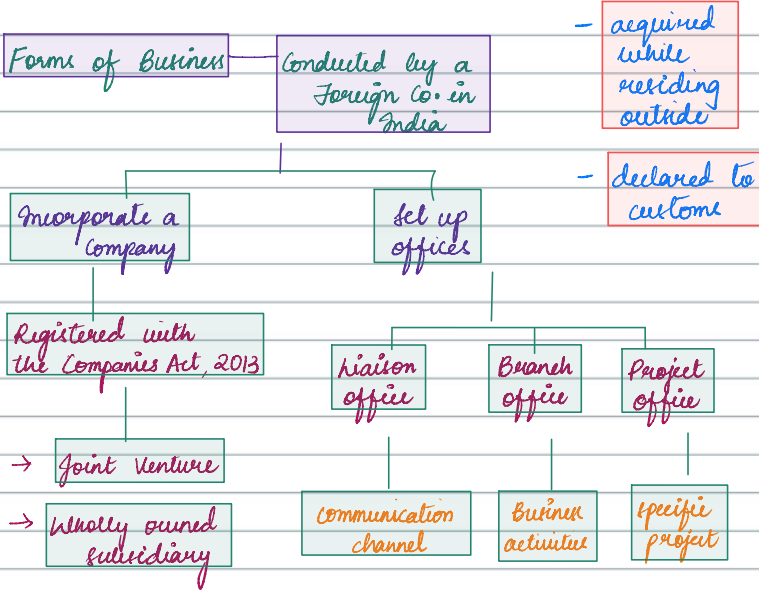 Forms of Business
Conducted by a
Foreign Co. in
India
- acquired
while
residing
outside
- declared to
customs
Incorporate a
Company
Set up
offices
Registered with
the Companies Act, 2013
Liaison
office
Branch
office
Project
office
→ Joint Venture
→ Wholly owned
subsidiary
communication
channel
Business
activities
specific
project